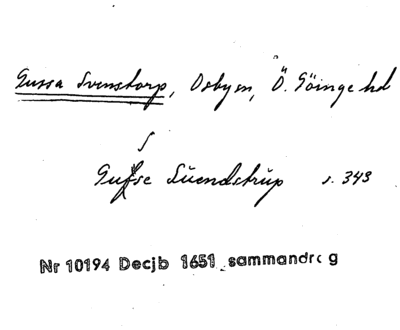 Gussa Svenstorp, Osby sn, Ö. Göinge hd
s
Gufse Süendstrüp s. 343
Nr 10194 Decjb 1651 sammandrag